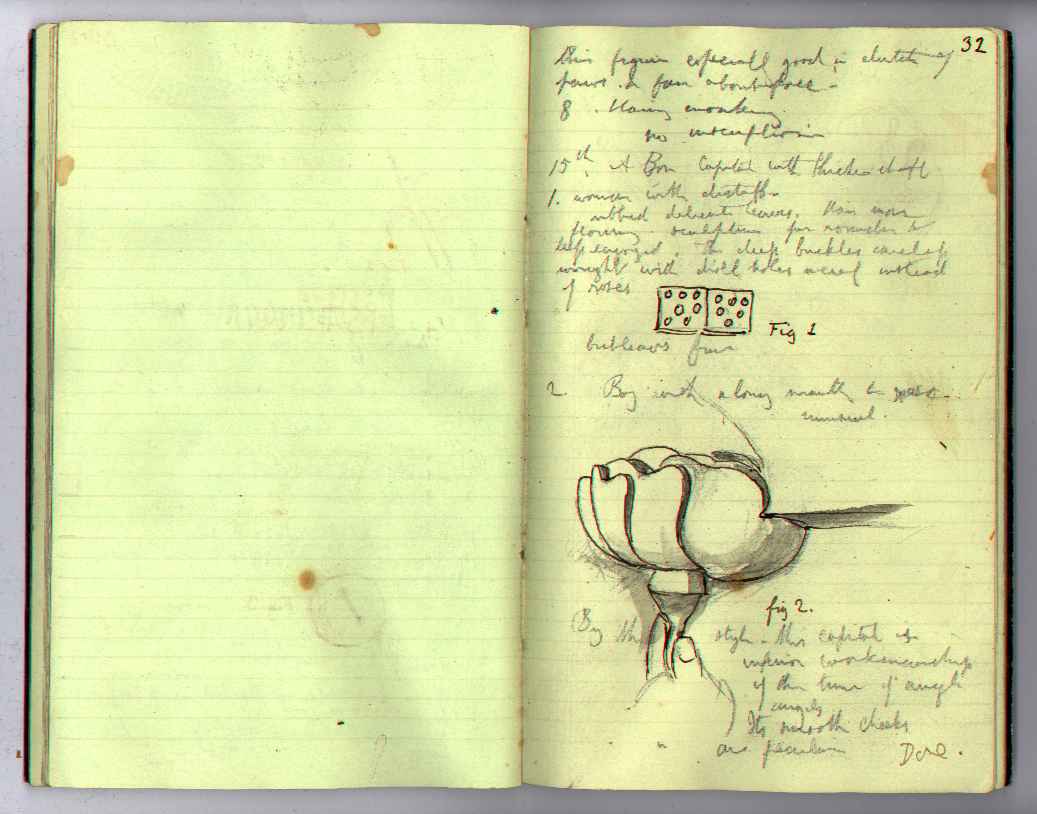 32
this figure especially good in clutching
paws. a fan about face -
8. Hairy monkey
no inscriptions
15th. A Born Capital with thicker shaft
1. woman with distaff -
rubbed delicate leaves. Hair more
flowing sculpture far rounder &
less energized. The deep buckles carelessly
wrought with drill holes instead
of roses
Fig 1
2. Boy with a long mouth to
unusual.
fig 2.
Boy this style - this capital is
inferior workmanship
of the time of angle
angels
Its smooth cheeks
are peculiar
Done.